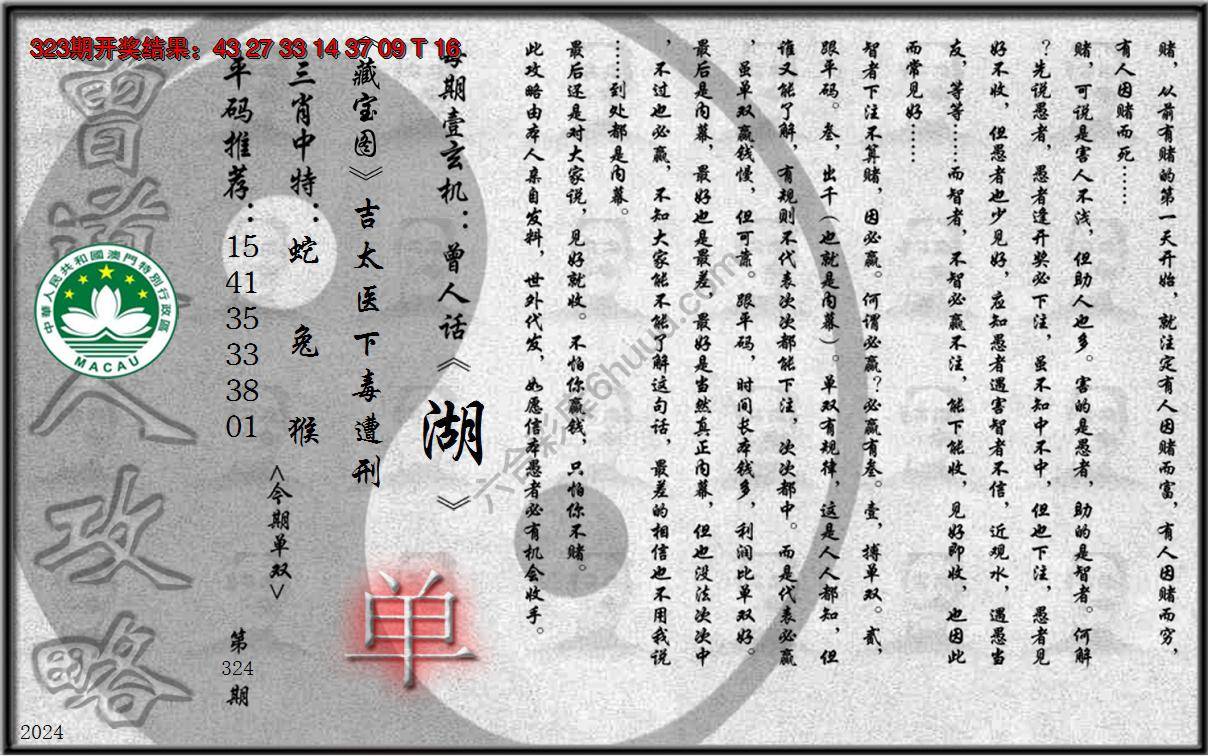 323期开奖结果：43 27 33 14 37 09 T 16
赌，从前有赌的第一天开始，就注定有人因赌而富，有人因赌而穷，
有人因赌而死……
赌，可说是害人不浅，但助人也多。害的是愚者，助的是智者。何解
？先说愚者，愚者逢开奖必下注，虽不知中不中，但也下注，愚者见
好不收，但愚者也少见好，应知愚者遇害智者不信，近观水，遇愚当
友，等等……而智者，不智必赢不注，能下能收，见好即收，也因此
而常见好……
智者下注不算赌，因必赢。何谓必赢？必赢有叁。壹，搏单双。贰，
跟平码。叁，出千（也就是内幕）。单双有规律，这是人人都知，但
谁又能了解，有规则不代表次次都能下注，次次都中。而是代表必赢
，虽单双赢钱慢，但可靠。跟平码，时间长本钱多，利润比单双好。
最后是内幕，最好也是最差，最好是当然真正内幕，但也没法次次中
，不过也必赢，不知大家能不能了解这句话，最差的相信也不用我说
……到处都是内幕。
最后还是对大家说，见好就收。不怕你赢钱，只怕你不赌。
此攻略由本人亲自发料，世外代发，如愿信本愚者必有机会收手。
每期壹玄机：曾人话《湖》
《藏宝图》吉太医下毒遭刑
三肖中特：蛇 兔 猴
<今期单双>
单
平码推荐：15 41 35 33 38 01
第324期
曾道人攻略
中華人民共和國澳門特別行政區
MACAU
六合彩库6huuu.com
2024